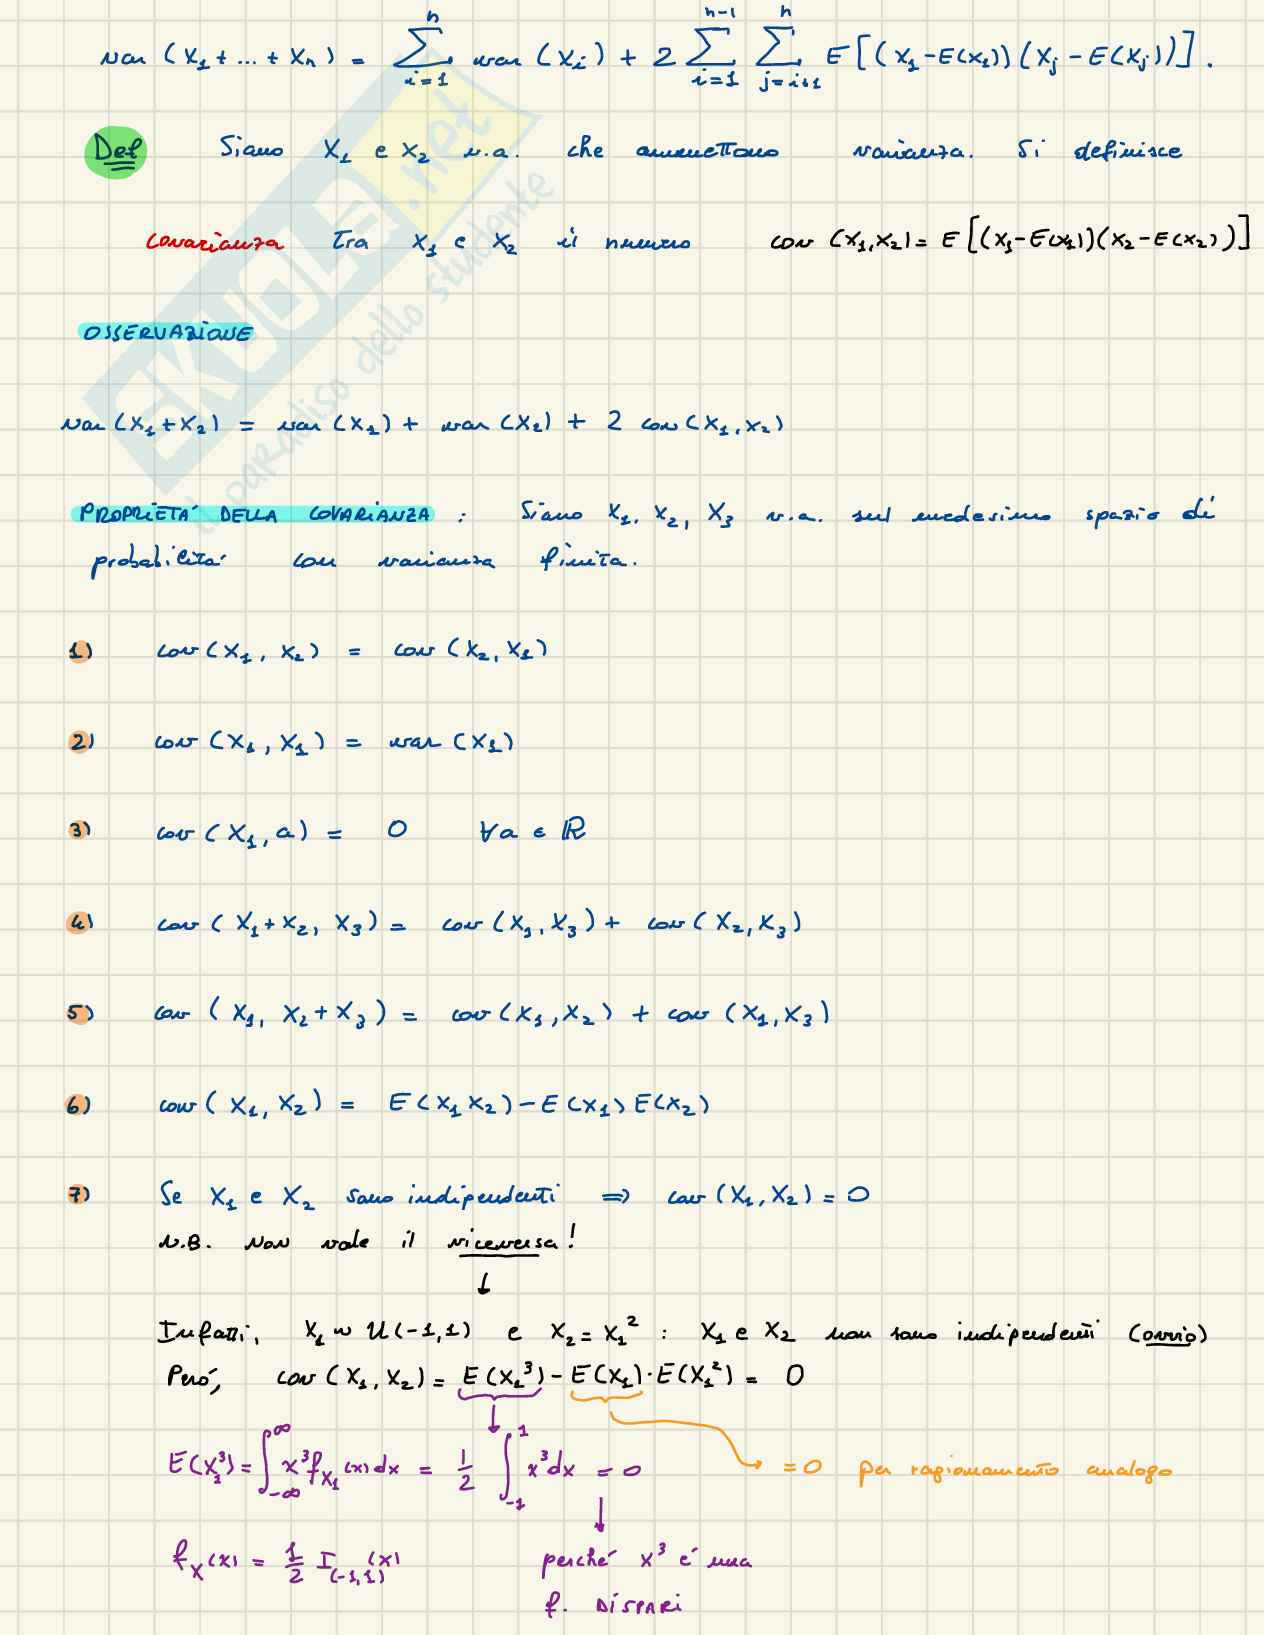 var (X₁ + ... + Xₙ) = ∑ᵢ₌₁ⁿ var (Xᵢ) + 2 ∑ᵢ₌₁ⁿ⁻¹ ∑ⱼ₌ᵢ₊₁ⁿ E[(X₁ - E(X₁))(Xⱼ - E(Xⱼ))].
Def Siano X₁ e X₂ v.a. che ammettono varianza. Si definisce
covarianza tra X₁ e X₂ il numero cov (X₁,X₂) = E[(X₁-E(X₁))(X₂-E(X₂))]
OSSERVAZIONE
var (X₁+X₂) = var (X₁) + var (X₂) + 2 cov (X₁,X₂)
PROPRIETA' DELLA COVARIANZA : Siano X₁, X₂, X₃ v.a. sul medesimo spazio di
probabilita' con varianza finita.
1) cov (X₁, X₂) = cov (X₂, X₁)
2) cov (X₁, X₁) = var (X₁)
3) cov (X₁, a) = 0 ∀a ∈ ℝ
4) cov (X₁+X₂, X₃) = cov (X₁,X₃) + cov (X₂,X₃)
5) cov (X₁, X₂+X₃) = cov (X₁,X₂) + cov (X₁,X₃)
6) cov (X₁, X₂) = E(X₁X₂) - E(X₁) E(X₂)
7) Se X₁ e X₂ sono indipendenti ⇒ cov (X₁,X₂) = 0
N.B. Non vale il viceversa!
↓
Infatti, X₁ ~ U(-1,1) e X₂ = X₁² : X₁ e X₂ non sono indipendenti (ovvio)
Peró, cov (X₁,X₂) = E(X₁³) - E(X₁)·E(X₁²) = 0
E(X₁³) = ∫₋∞^∞ x³f_X₁(x)dx = 1/2 ∫₋₁¹ x³dx = 0 → = 0 per ragionamento analogo
f_X(x) = 1/2 I₍₋₁,₁₎(x) perché x³ é una
f. DISPARI
SKUOLA.net
il paradiso dello studente